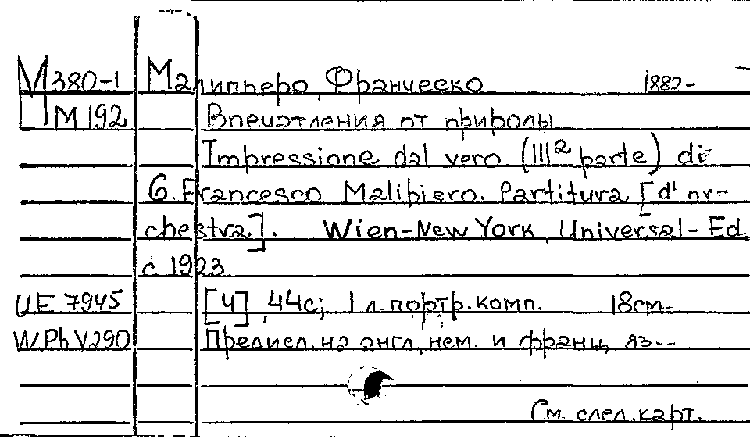 М380-1 Малипперо, Франческо 1882-
М192 Впечатления от природы
Impressione dal vero. (IIIª parte) di
G. Francesco Malipiero. Partitura [d'or-
chestra]. Wien-New York, Universal-Ed.
c 1923
UE 7945 [4], 44с; 1 л. портр. комп. 18см.
W.Ph.V.290 Предисл. на англ, нем. и франц. яз.-
См. след. карт.